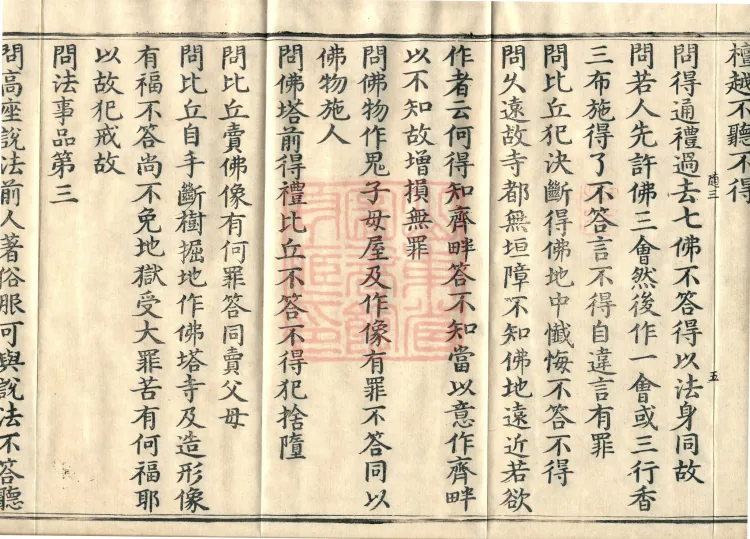 檀越不聽不得
問得通禮過去七佛不答得以法身同故
隨三
問若人先許佛三會然後作一會或三行香
五
三布施得了不答言不得自違言有罪
問比丘犯決斷得佛地中懺悔不答不得
問乆遠故寺都無垣障不知佛地遠近若欲
作者云何得知齊畔答不知當以意作齊畔
以不知故增損無罪
問佛物作鬼子母屋及作像有罪不答同以
佛物施人
問佛塔前得禮比丘不答不得犯捨墮
問比丘賣佛像有何罪答同賣父母
問比丘自手斷樹掘地作佛塔寺及造形像
有福不答尚不免地獄受大罪苦有何福耶
以故犯戒故
問法事品第三
問高座說法前人著俗服可與說法不答聽